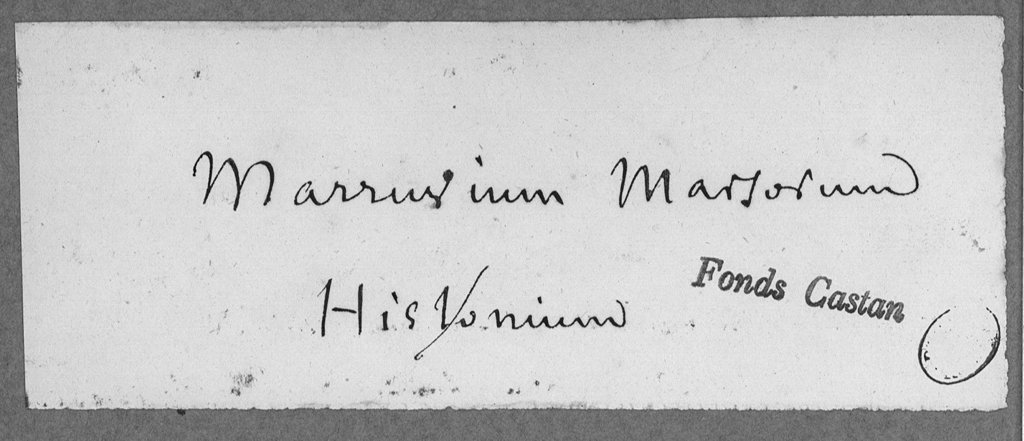 Marruvium Marsorum
Histonium
Fonds Castan